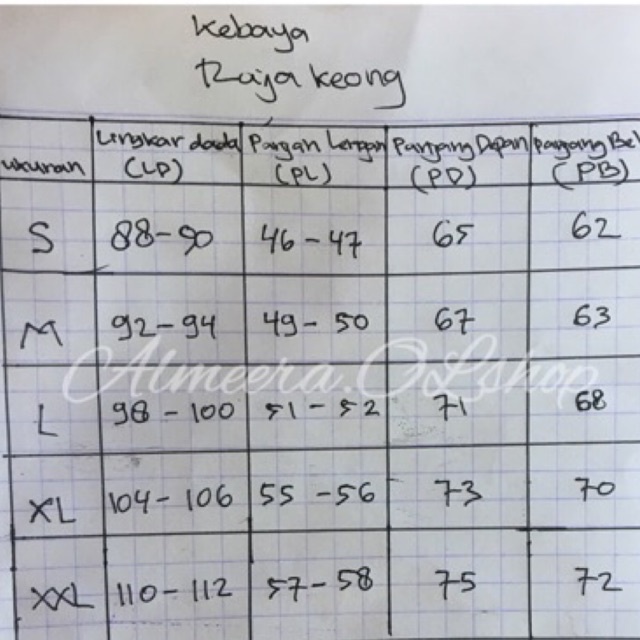 Kebaya
Raja Keong
ukuran Lingkar dada (LD) Panjan Lengan (PL) Panjang Depan (PD) Panjang Bel (PB)
S 88-90 46-47 65 62
M 92-94 49-50 67 63
L 98-100 51-52 71 68
XL 104-106 55-56 73 70
XXL 110-112 57-58 75 72
Almeera.OLshop